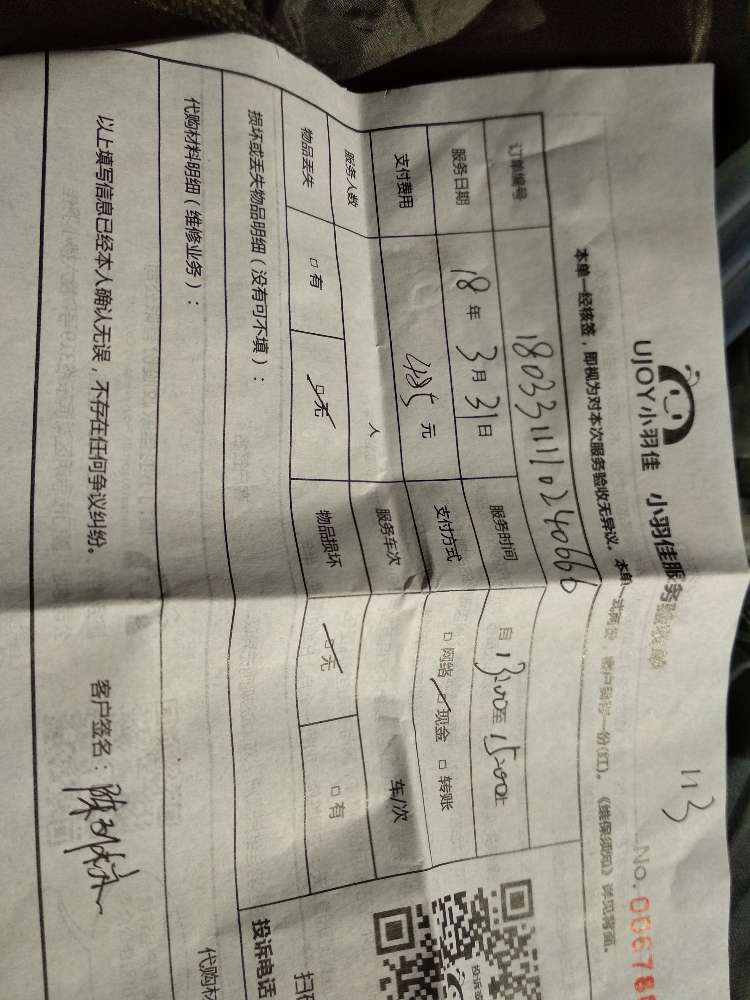 UJOY小羽佳 小羽佳服务验收单
113
No. 00678
本单一经核签，即视为对本次服务验收无异议。本单一式两份，客户留存一份(红)。《维保须知》详见背面。
订单编号 1803311110240666
服务日期 18年3月31日 服务时间 自13:00至15:00止
支付费用 485元 支付方式 □网络 □现金 □转账
服务人数 人 服务车次 车/次
物品丢失 □有 □无 物品损坏 □无 □有
损坏或丢失物品明细（没有可不填）：
代购材料明细（维修业务）：
以上填写信息已经本人确认无误，不存在任何争议纠纷。 客户签名：
投诉电话
代购材